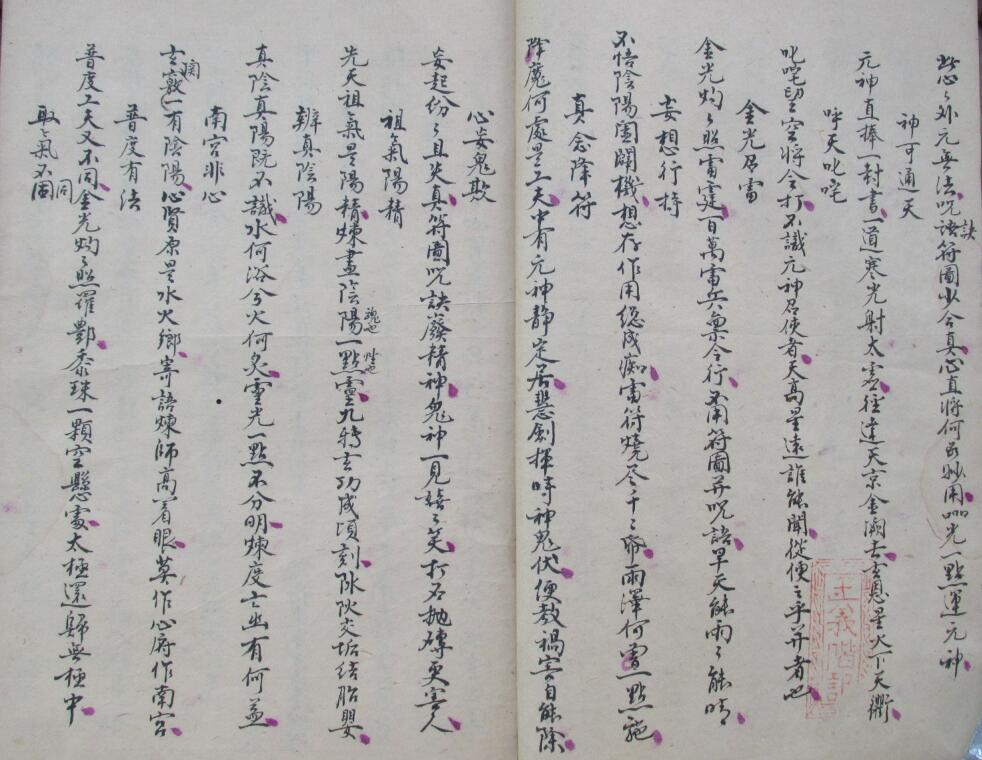 此心之外元無法咒訣語符圖必合真心直將何為妙用神光一點運元神
神可通天
元神直捧一封書一道寒光射太虛徑達天京金闕去玄恩星火下天衢
呼天叱咤
叱咤望空將令打不識元神召使者天高星遠誰能聞從使之乎并者也
金光召雷
金光灼灼照雷霆百萬雷兵稟令行不用符圖并咒語旱天能雨雨能晴
妄想行持
不悟陰陽闔闢機想存作用總成痴畫符燒盡千千紙雨澤何曾一點施
真念降符
降處何處是工夫中有元神静定居慧劍揮時神鬼伏便教禍害自能除
心妄鬼欺
妄起份份且失真符圖咒訣廢精神鬼神一見嘻嘻笑打石拋磚更害人
祖氣陽精
先天祖氣是陽精煉盡陰陽一點靈九轉玄功成頃刻陰陽交垢结胎嬰
魂也 性也
辨真陰陽
真陰真陽既不識水何浴兮火何炙靈光一點不分明煉度亡幽有何益
南宫非心
玄竅一有陰陽心腎原是水火鄉寄語煉師高着眼莫作心府作南宮
普度有法
普度工夫又不同金光灼灼照羅酆黍珠一顆空懸處太極還歸無極中
取氣不同
主義階記